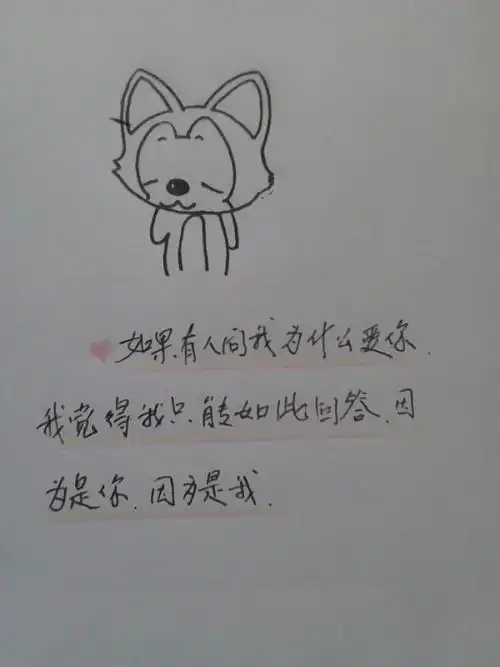 如果有人问我为什么爱你.
我觉得我只能如此回答.因
为是你.因为是我.